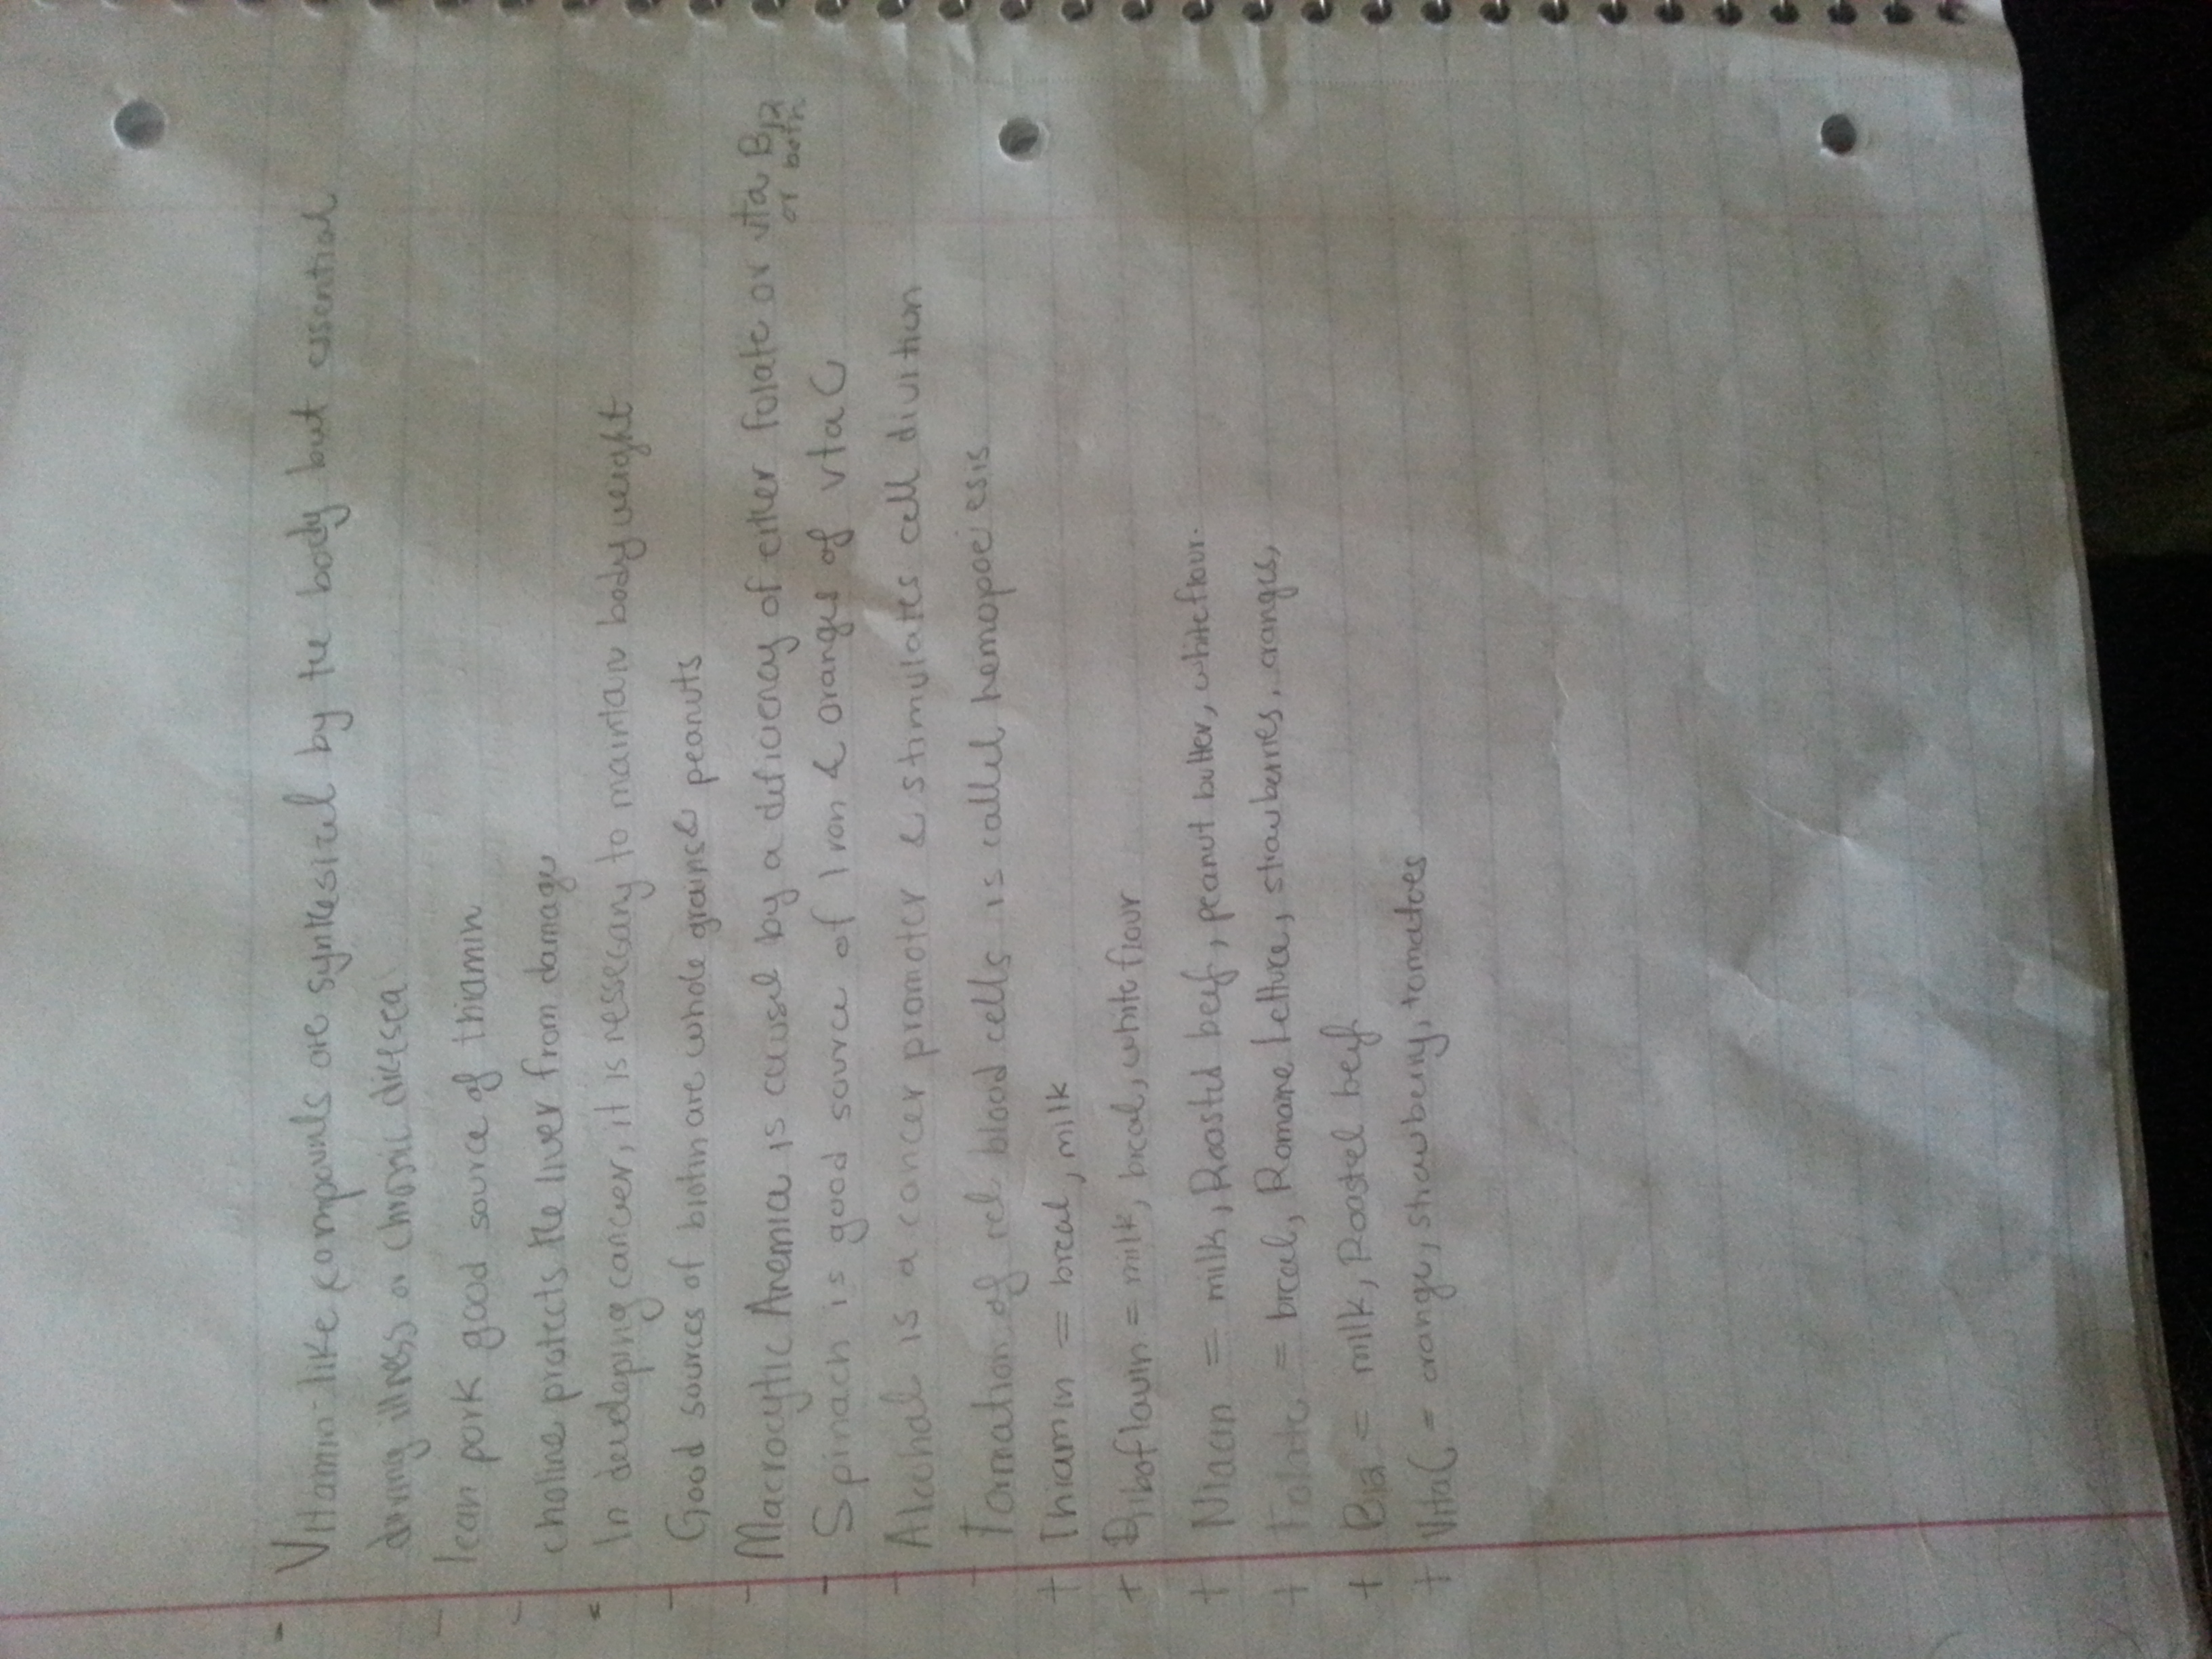 - Vitamin-like compounds are synthesized by the body but essential
during illness or chronic disease
- lean pork good source of thiamin
- choline protects the liver from damage
- In developing cancer, it is nessecary to maintain body weight
- Good sources of biotin are whole grains & peanuts
- Macrocytic Anemia is caused by a deficiency of either folate or vita B12
or both
- Spinach is good source of Iron & oranges of vta C
- Alcohol is a cancer promoter & stimulates cell divition
- Formation of red blood cells is called hemopoeiesis
+ Thiamin = bread, milk
+ Riboflavin = milk, bread, white flour
+ Niacin = milk, Roasted beef, peanut butter, white flour.
+ Folate = bread, Romaine Lettuce, strawberries, oranges,
+ B12 = milk, Roasted beef
+ Vita C = orange, strawberry, tomatoes